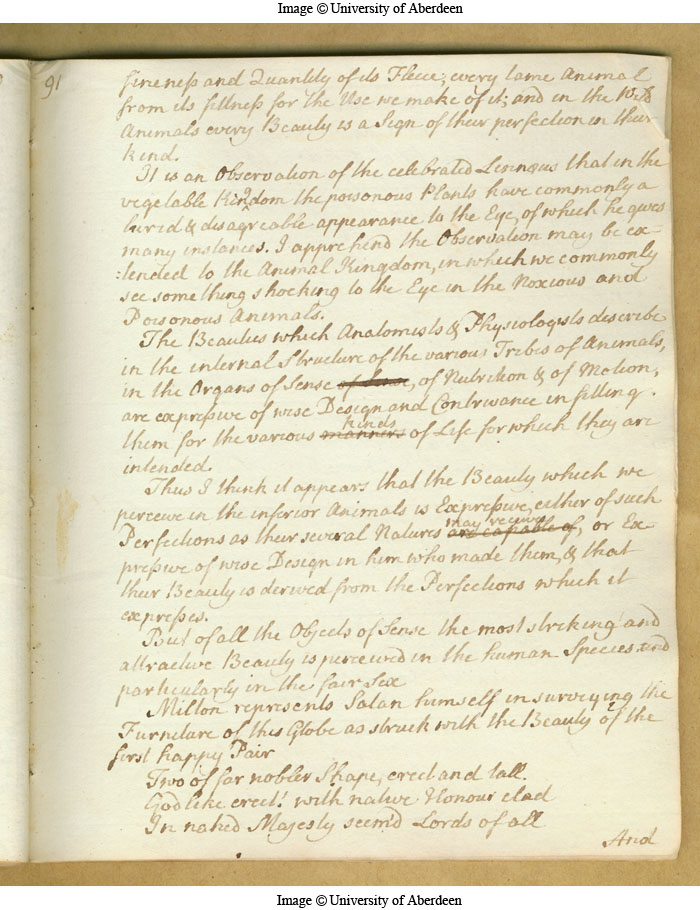 Image © University of Aberdeen
91
fineness and Quantity of its Fleece; every tame Animal
from its fittness for the Use we make of it; and in the Wild
Animals every Beauty is a Sign of their perfection in their
kind.
It is an Observation of the celebrated Linnæus that in the
vegetable Kingdom the poisonous Plants have commonly a
lurid & disagreeable appearance to the Eye, of which he gives
many instances. I apprehend the Observation may be ex-
:tended to the Animal Kingdom, in which we commonly
see something shocking to the Eye in the Noxious and
Poisonous Animals.
The Beauties which Anatomists & Physiologists describe
in the internal Structure of the various Tribes of Animals,
in the Organs of Sense, of Nutrition & of Motion,
are expressive of wise Design and Contrivance in fitting
kinds
them for the various manners of Life for which they are
intended.
Thus I think it appears that the Beauty which we
perceive in the inferior Animals is Expressive, either of such
may receive
Perfections as their several Natures are capable of, or Ex-
pressive of wise Design in him who made them, & that
their Beauty is derived from the Perfections which it
expresses.
But of all the Objects of Sense the most striking and
attractive Beauty is perceived in the human Species and
particularly in the fair Sex
Milton represents Satan himself in surveying the
Furniture of this Globe as struck with the Beauty of the
first happy Pair
Two of far nobler Shape, erect and tall.
Godlike erect! with native Honour clad
In naked Majesty seem'd Lords of all
And
Image © University of Aberdeen